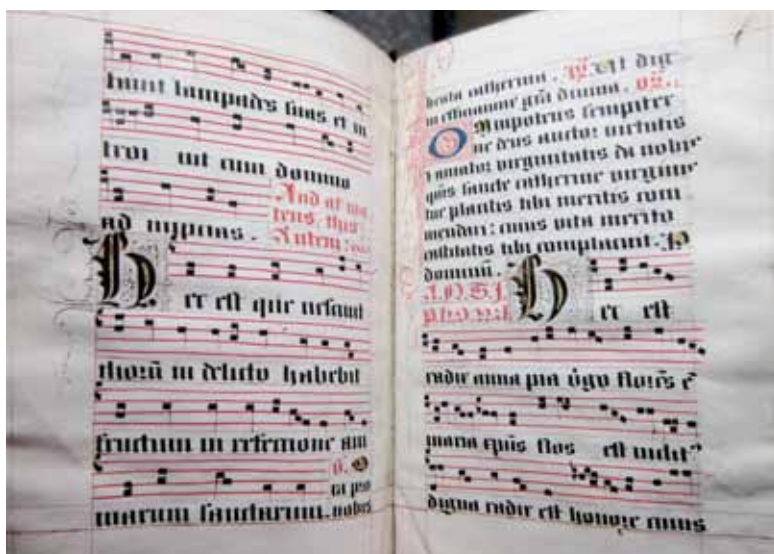 lampades suas et in
cum domino
ad nupcias. And at ma
tens, this
Antem:
Hec est que nesciuit
thorū in delicto habebit
fructum in refectione ani
marum sanctarum. ℣. O
ra pro
nobis
beata catherina. ℟. Et dig
domini.
Omnipotens sempiter
ne deus auctor virtutis
amator virginitatis da nobis
sancte catherine virginis
tue tibi meritis com
mendari: cuius vita merito
castitatis tibi complacuit. P
dominū.
Hec est
radix anna pia v̄go
maria flos est
digna radix est honore cuius